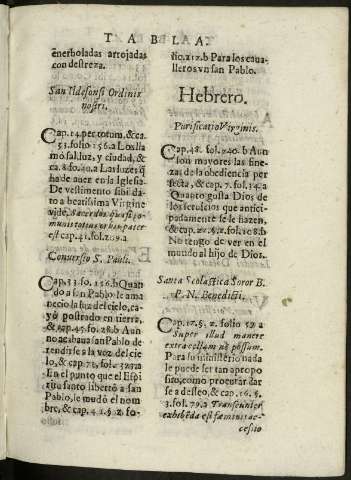 TABLA
enerboladas arrojadas
con destreza.
San Ildefonsi Ordinis
nostri.
Cap. 14. per totum, & ca.
53. folio 156. a Los lla
mó sal, luz, y ciudad, &
ca. 8. fo. 40. a Las luzes q̃
ha de auer en la Iglesia
De vestimento sibi dat
a beatissima Virgine
vide, Sacerdos quasi
munis totius orbis pater
est cap. 41. fol. 209. a
Conuersio S. Pauli.
Cap. 53. fo. 156. b Quan
do a san Pablo le ama
necio la luz del cielo, ca
yò postrado en tierra,
& cap. 45. fo. 28. b Aun
no acabaua san Pablo de
rendirse a la voz del cie
lo, & cap. 73. fol. 323. a
En el punto que el Espi
ritu santo libertò a san
Pablo, le mudò el nom
bre, & cap. 41. §. 2. fo-
lio. 212. b Para los caua-
lleros vn san Pablo.
Hebrero.
Purificatio Virginis.
Cap. 48. fol. 240. b Aun
son mayores las fine
zas de la obediencia per
fecta, & cap. 7. fol. 34. a
Quanto gusta Dios de
los seruicios que antici
padamente se le hazen,
& cap. 22. §. 2. fo. 108. b
No tengo de ver en el
mundo al hijo de Dios.
Santa Scolastica Soror B.
P. N. Benedicti.
Cap. 17. §. 2. folio 59. a
Super illud manere
extra cellam nõ possum.
Para su ministerio nada
le puede ser tan propo
sito, como procurar dar
se a deseo, & cap. 16. §.
3. fol. 79. a Transeunter
exhibẽda est fæminis ac-
cessio